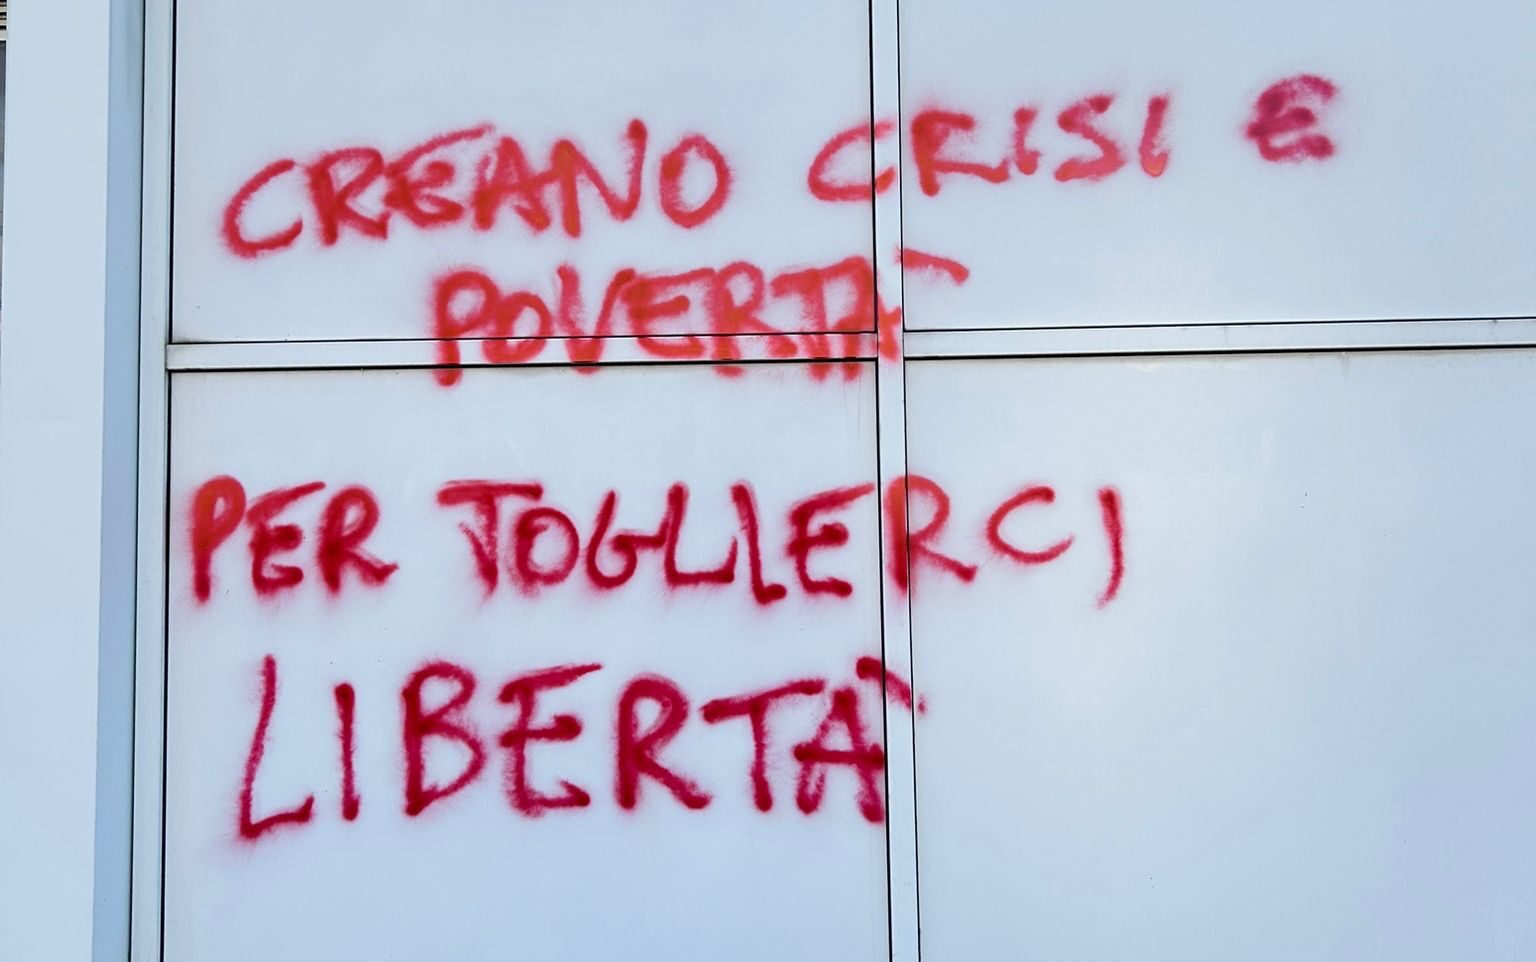 CREANO CRISI E
POVERTÀ
PER TOGLIERCI
LIBERTÀ